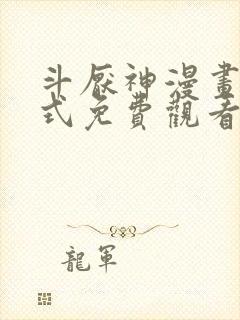 斗厭神漫畫
式免費觀看
龍軍